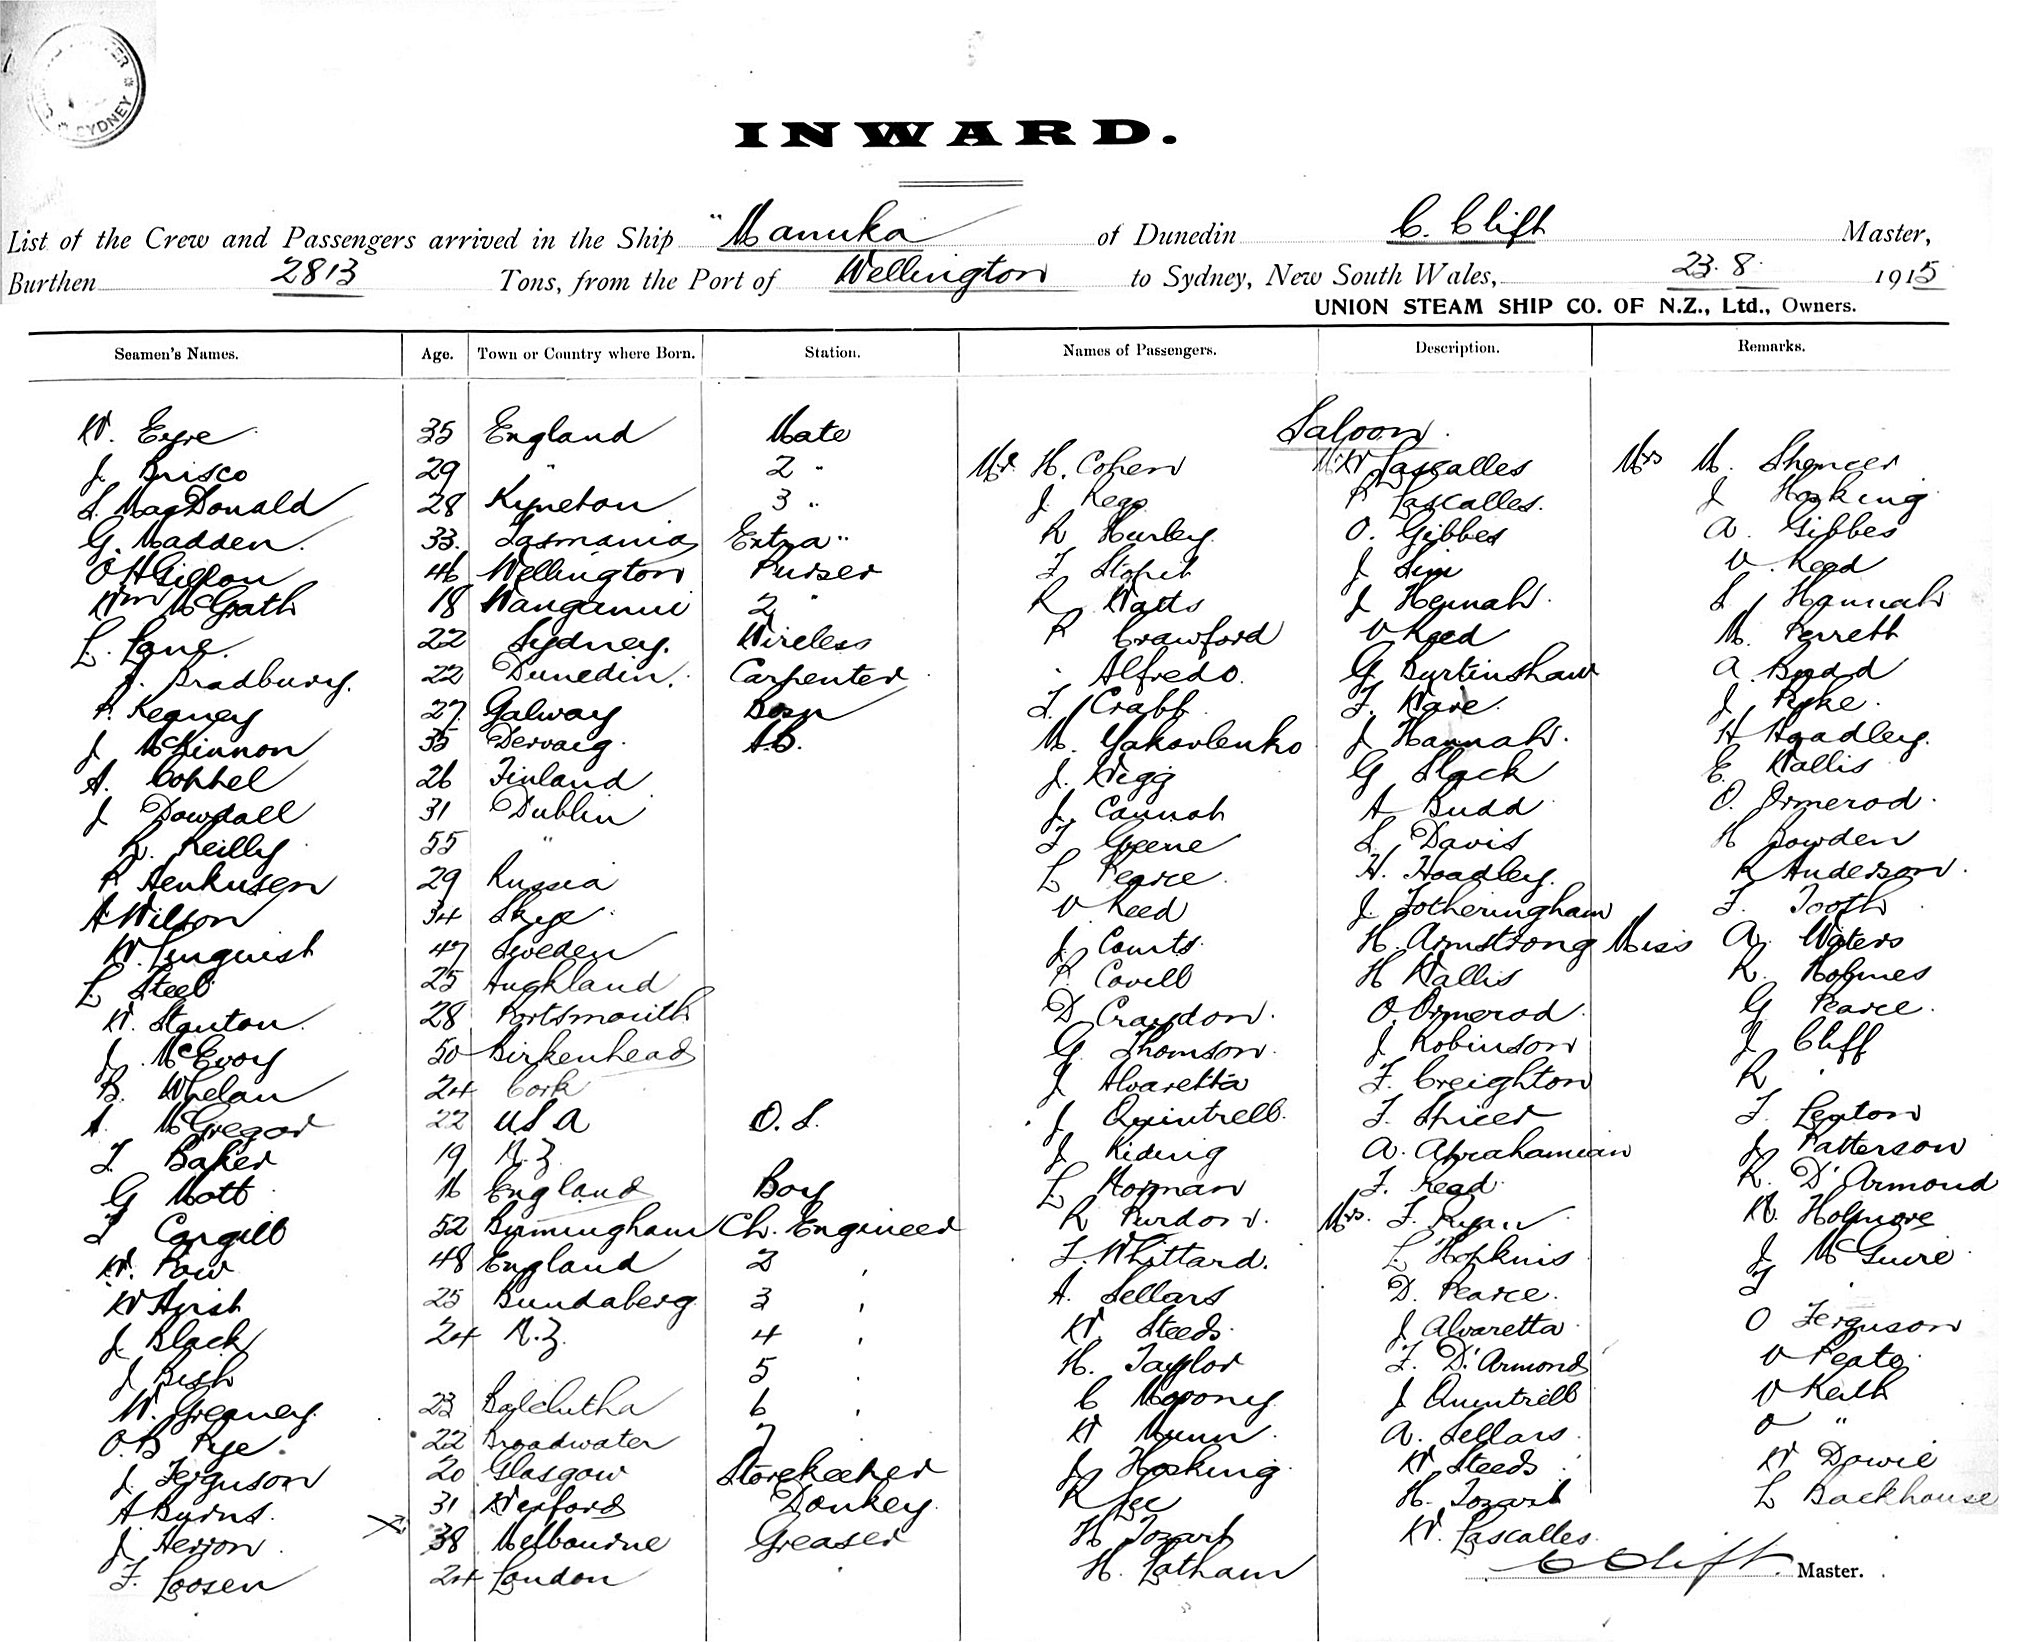 SYDNEY
INWARD.
List of the Crew and Passengers arrived in the Ship "Manuka of Dunedin C. Clift Master,
Burthen 2813 Tons, from the Port of Wellington to Sydney, New South Wales, 23. 8. 1915
UNION STEAM SHIP CO. OF N.Z., Ltd., Owners.
Seamen's Names. Age. Town or Country where Born. Station. Names of Passengers. Description. Remarks.
Saloon.
W. Eyre 35 England Mate
J. Brisco 29 " 2 " Mr. H. Cohen Mr W Lascalles Mrs M. Spencer
S. MacDonald 28 Kyneton 3 " J. Lascalles. J Hosking
G. Madden. 33. Tasmania Extra " R Hurley O. Gibbes A. Gibbes
46 Wellington Purser J Sim V. Read
Wm McGrath 18 Wanganui 2 " R Watts J Hannah. S Hannah
L. Lane. 22 Sydney. Wireless P Crawford V Reed M. Perrett
J. Bradbury. 22 Dunedin. Carpenter Alfredo. G Burtinshaw A. Budd
P. Keaney 27. Galway Bosn T. Crabb F. Ware. J Pyke.
J McKinnon 35 Dervaig. A.B. M. Yakovlenko J Hannah. H Hoadley.
A. Coppel 26 Finland J. Wegg G Slack E. Wallis
J Dowdall 31 Dublin J. Cannah A Budd O. Ormerod.
R. Reilly 55 " T Greene S Davis H Bowden
P Henkusen 29 Russia L Pearce. H. Hoadley. R Anderson.
A Wilson 34 Skye. V Reed J. Fotheringham F. Tooth
W. Linquist 47 Sweden J. Counts. H. Armstrong Miss A. Waters
L. Steel 25 Auckland P. Covell H Wallis R. Holmes
W. Stanton. 28 Portsmouth D Craydon. O. Ormerod. G Pearce.
J. McEvoy 50 Birkenhead G. Thomson. J Robinson J Cliff
B. Whelan 24 Cork J Alvaretta F. Creighton R "
A. McGregor 22 U S A O. S. J Quintrell. F. Spicer F. Lenton
T. Baker 19 N. Z. J Riding A. Abrahamian J Patterson
G Mott 16 England Boy L Norman F. Read R. D'Armond
T Cargill 52 Birmingham Ch. Engineer R Purdon. Mrs. F. Ryan W. Holmore
W. Pow 48 England 2 " F. Whittard. L Hopkins J McGuire
25 Bundaberg 3 " A. Sellars D. Pearce. J "
J Black 24 N.Z. 4 " W Steeds. J Alvaretta O Ferguson
J Bish 5 " H. Taylor F. D'Armond
W. Greaney. 23 Balclutha 6 " C Mooney J Quintrell V Keith
O. B Pye. 22 Broadwater 7 " W Munn. A. Sellars O "
J. Ferguson 20 Glasgow Storekeeper J Hosking W Steeds W Dowie
A Burns. 31 Wexford Donkey. R Lee H. Tozart L Backhouse
J Herron 38 Melbourne Greaser H Tozart W. Lascalles.
F. Loosen 24 London H. Latham C Clift. Master.